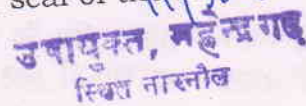 seal of the
उपायुक्त, महेन्द्रगढ़
स्थित नारनौल